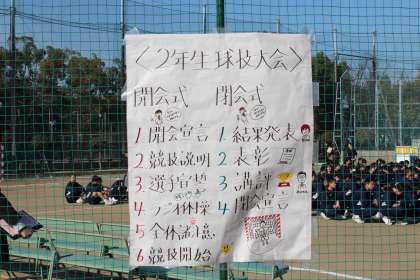 〈2年生球技大会〉
開会式
1.開会宣言
2.競技説明
3.選手宣誓
4.ラジオ体操
5.全体諸注意
6.競技開始
閉会式
1.結果発表
2.表彰
3.講評
4.閉会宣言